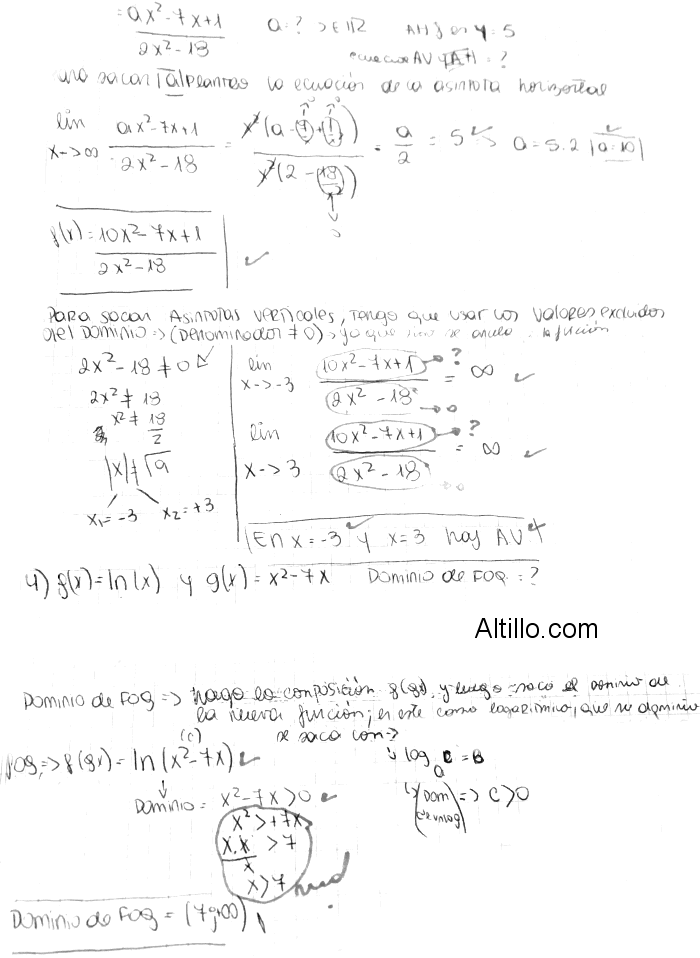 = ax²-7x+1 / 2x²-18 a=? ∈ℝ AH en y=5
AV y AH = ?
sacar a planteo la ecuación de la asintota horizontal
lin x->∞ ax²-7x+1 / 2x²-18 = x²(a - 7 + 1) / x²(2 - 18/x²) = a/2 = 5 a=5.2 a=10
f(x)= 10x²-7x+1 / 2x²-18
Para sacar Asintotas verticales, tengo que usar los valores excluidos
del Dominio => (Denominador ≠ 0), ya que sino se anula la función
2x²-18≠0
2x²≠18
x²≠ 18/2
|x|≠√9
x₁=-3 x₂=+3
lin x->-3 10x²-7x+1 / 2x²-18 = ∞ ?
lin x->3 10x²-7x+1 / 2x²-18 = ∞ ?
En x=-3 y x=3 hay AV
4) f(x)=ln(x) y g(x)=x²-7x Dominio de FOG:?
Altillo.com
Dominio de FOG => hago la composición f(gx), y luego saco el dominio de
la nueva función; es este como logaritmico, que su dominio
se saca con->
fog => f(gx)= ln(x²-7x) (c)
log a C = B
Dom => C>0
Dominio = x²-7x>0
x²>+7x
x.x / x >7
x>7
mal
Dominio de FOG = (7;+∞)